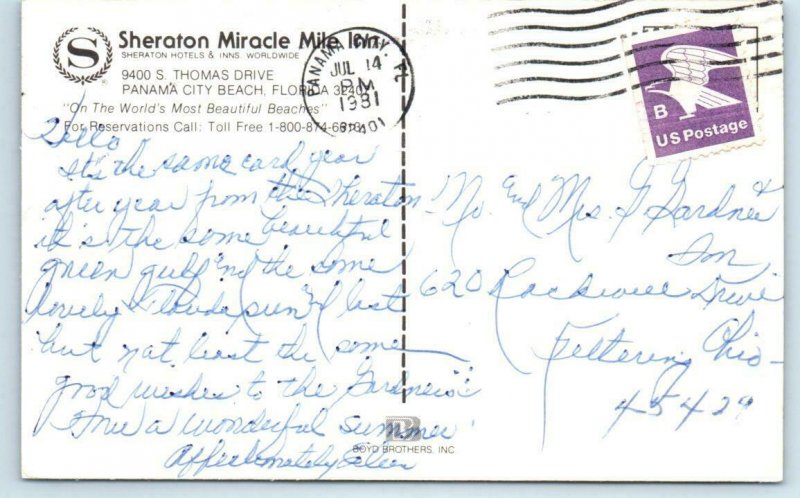 Sheraton Miracle Mile Inn
SHERATON HOTELS & INNS, WORLDWIDE
9400 S. THOMAS DRIVE
PANAMA CITY BEACH, FLORIDA 32401
"On The World's Most Beautiful Beaches"
For Reservations Call: Toll Free 1-800-874-66
Hello
It's the same card year
after year from the Sheraton
it's the same beautiful
green gulf nd the same
lovely Florida sun nd last
but not least the same
good wishes to the Gardners
a wonderful summer
Affectionately Eileen
PANAMA CITY, FL
JUL 14
PM
1981
32401
B
US Postage
Mr. and Mrs. G Gardner &
620 Rockwell Drive
Kettering Ohio-
45429
B
BOYD BROTHERS, INC